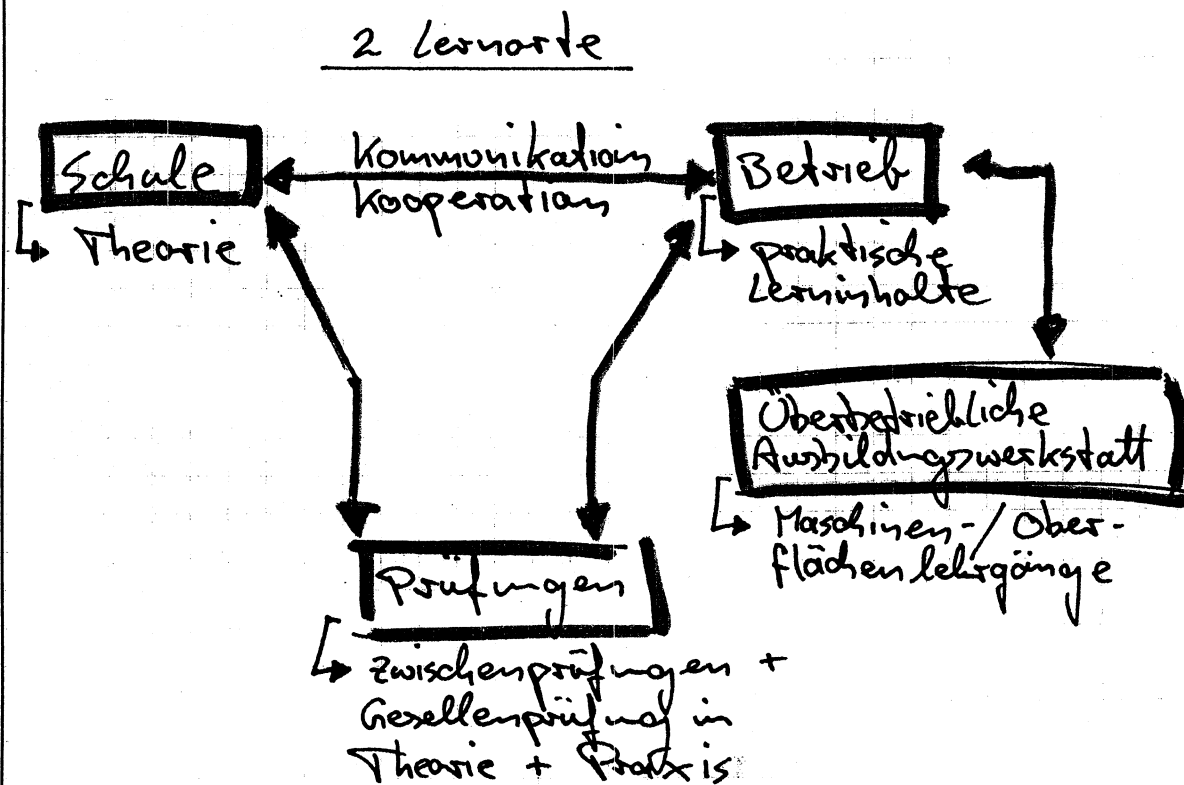 2 Lernorte
Schule
Kommunikation
Kooperation
Betrieb
Theorie
praktische
Lerninhalte
Überbetriebliche
Ausbildungswerkstatt
Maschinen-/Ober-
flächenlehrgänge
Prüfungen
Zwischenprüfungen +
Gesellenprüfung in
Theorie + Praxis